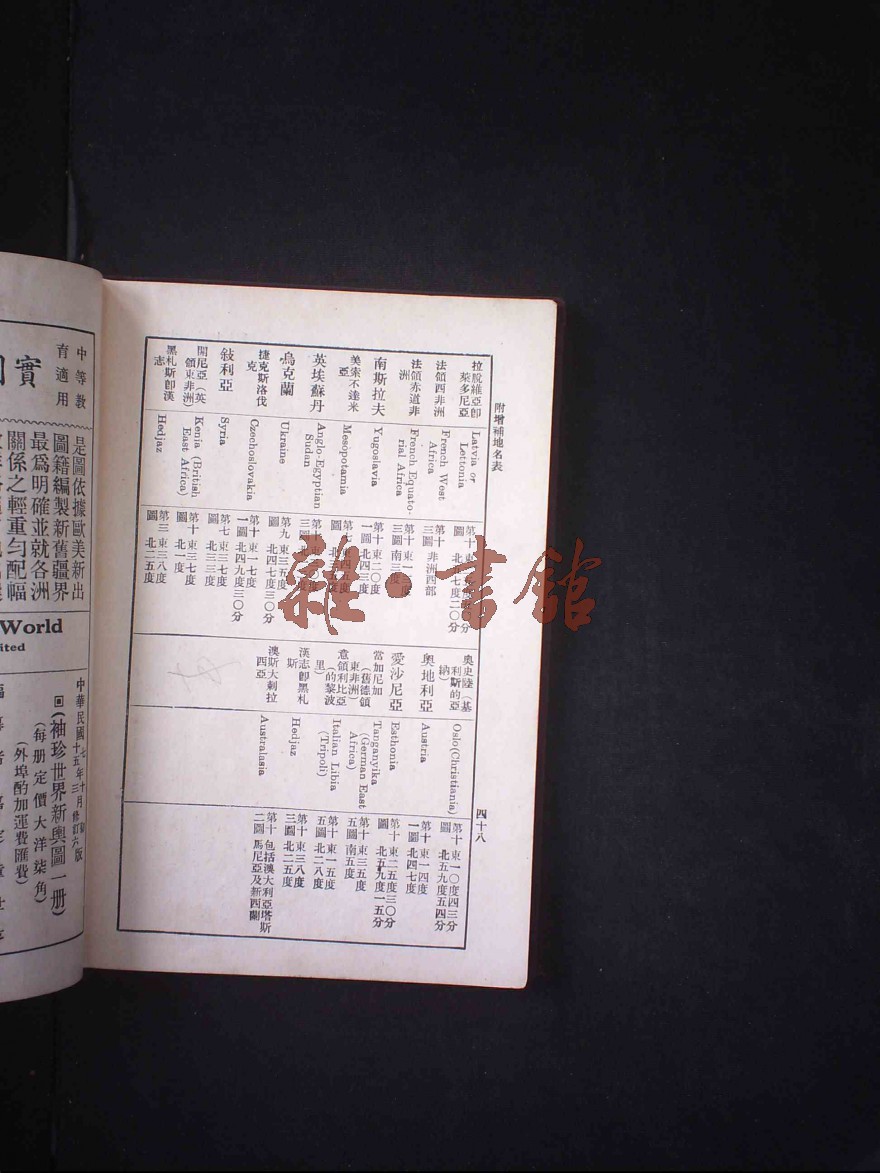 附增補地名表
四十八
拉脫維亞卽
萊多尼亞
Latvia or
Lettonia
法領西非洲
French West
Africa
第十
三圖
非洲西部
法領赤道非
洲
French Equato-
rial Africa
第十
三圖
南斯拉夫
Yugoslavia
第十 東二〇度
一圖 北四三度
美索不達米
亞
Mesopotamia
英埃蘇丹
Anglo-Egyptian
Sudan
烏克蘭
Ukraine
第九 東三五度
圖 北四七度
捷克斯洛伐
克
Czechoslovakia
第十 東一七度
一圖 北四九度三〇分
敍利亞
Syria
第七 東三七度
圖 北三三度
開尼亞(英
領東非洲)
Kenia (British
East Africa)
第十 東三七度
圖 北一度
黑札斯卽漢
志
Hedjaz
第三 東三八度
圖 北二五度
奥史陸(基
利斯的亞
納)
Oslo(Christiania)
第十 東一〇度四三分
圖 北五九度五四分
奥地利亞
Austria
第十 東一四度
一圖 北四七度
愛沙尼亞
Esthonia
第十 東二五度三〇分
圖 北五九度一五分
當加尼加
(舊德領
東非洲)
Tanganyika
(German East
Africa)
第十 東三五度
五圖 南五度
意領利比亞
(的黎波
里)
Italian Libia
(Tripoli)
第十 東一五度
五圖 北二八度
漢志卽黑札
斯
Hedjaz
第十 東三八度
三圖 北二五度
澳斯大剌拉
西亞
Australasia
第十 包括澳大利亞塔斯
二圖 馬尼亞及新西蘭
中等教
育適用
實
是圖依據歐美新出
圖籍編製新舊疆界
最爲明確並就各洲
關係之輕重勻配幅
World
ited
中華民國
(袖珍世界新輿圖一册)
(每册定價大洋柒角)
(外埠酌加運費匯費)
雜·書館